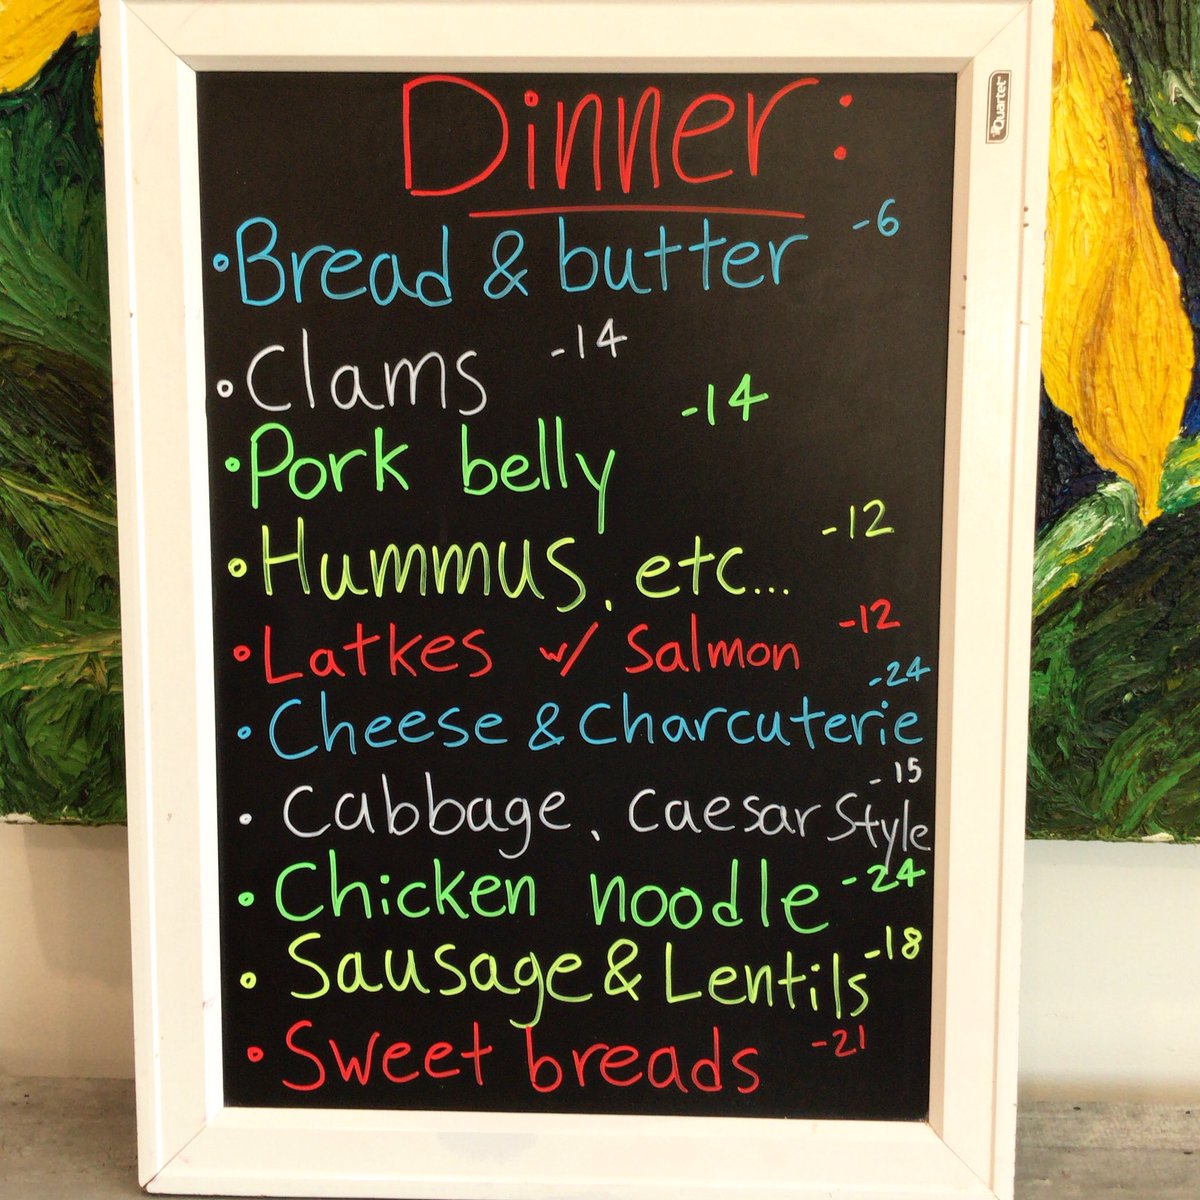 Quartet
Dinner:
• Bread & butter -6
• Clams -14
• Pork belly -14
• Hummus, etc... -12
• Latkes w/ Salmon -12
• Cheese & Charcuterie -24
• Cabbage, caesar style -15
• Chicken noodle -24
• Sausage & Lentils -18
• Sweet breads -21